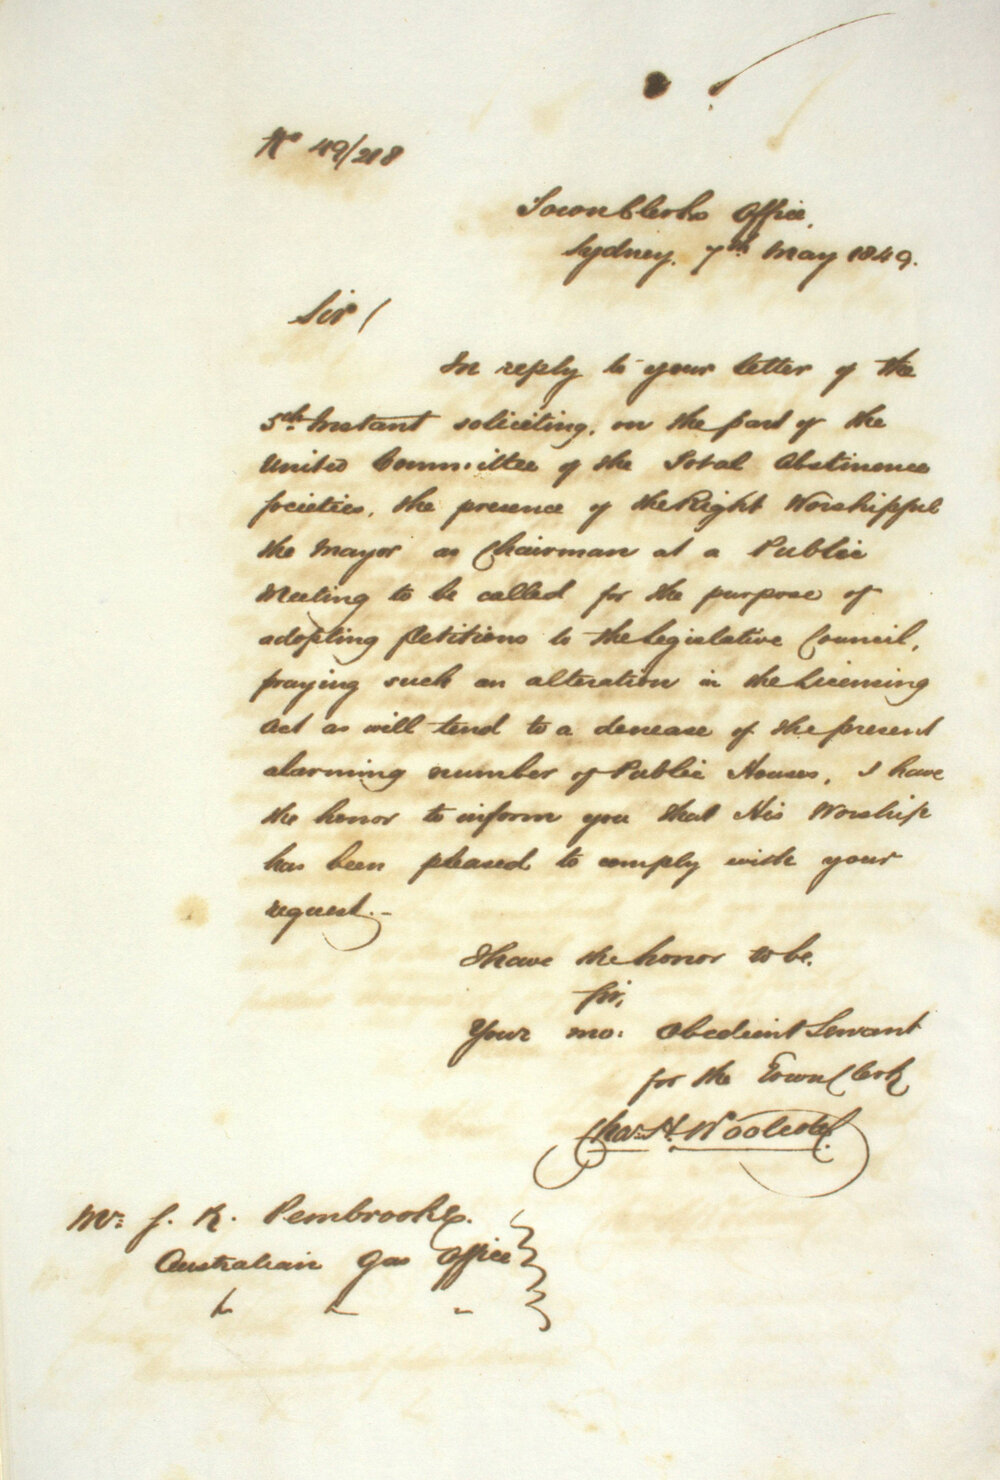 No 49/218
Town Clerks Office,
Sydney. 7th May 1849.
Sir /
In reply to your letter of the
5th Instant soliciting, on the part of the
United Committee of the Total Abstinence
Societies, the presence of the Right Worshipful
the Mayor as Chairman at a Public
Meeting to be called for the purpose of
adopting Petitions to the Legislative Council,
praying such an alteration in the Licensing
Act as will tend to a decrease of the present
alarming number of Public Houses, I have
the honor to inform you that His Worship
has been pleased to comply with your
request.-
I have the honor to be.
Sir,
Your mo: Obedient Servant
for the Town Clerk
Chas. H. Woolcott
Mr: J. K. Pembrooke.
Australian Gas Office